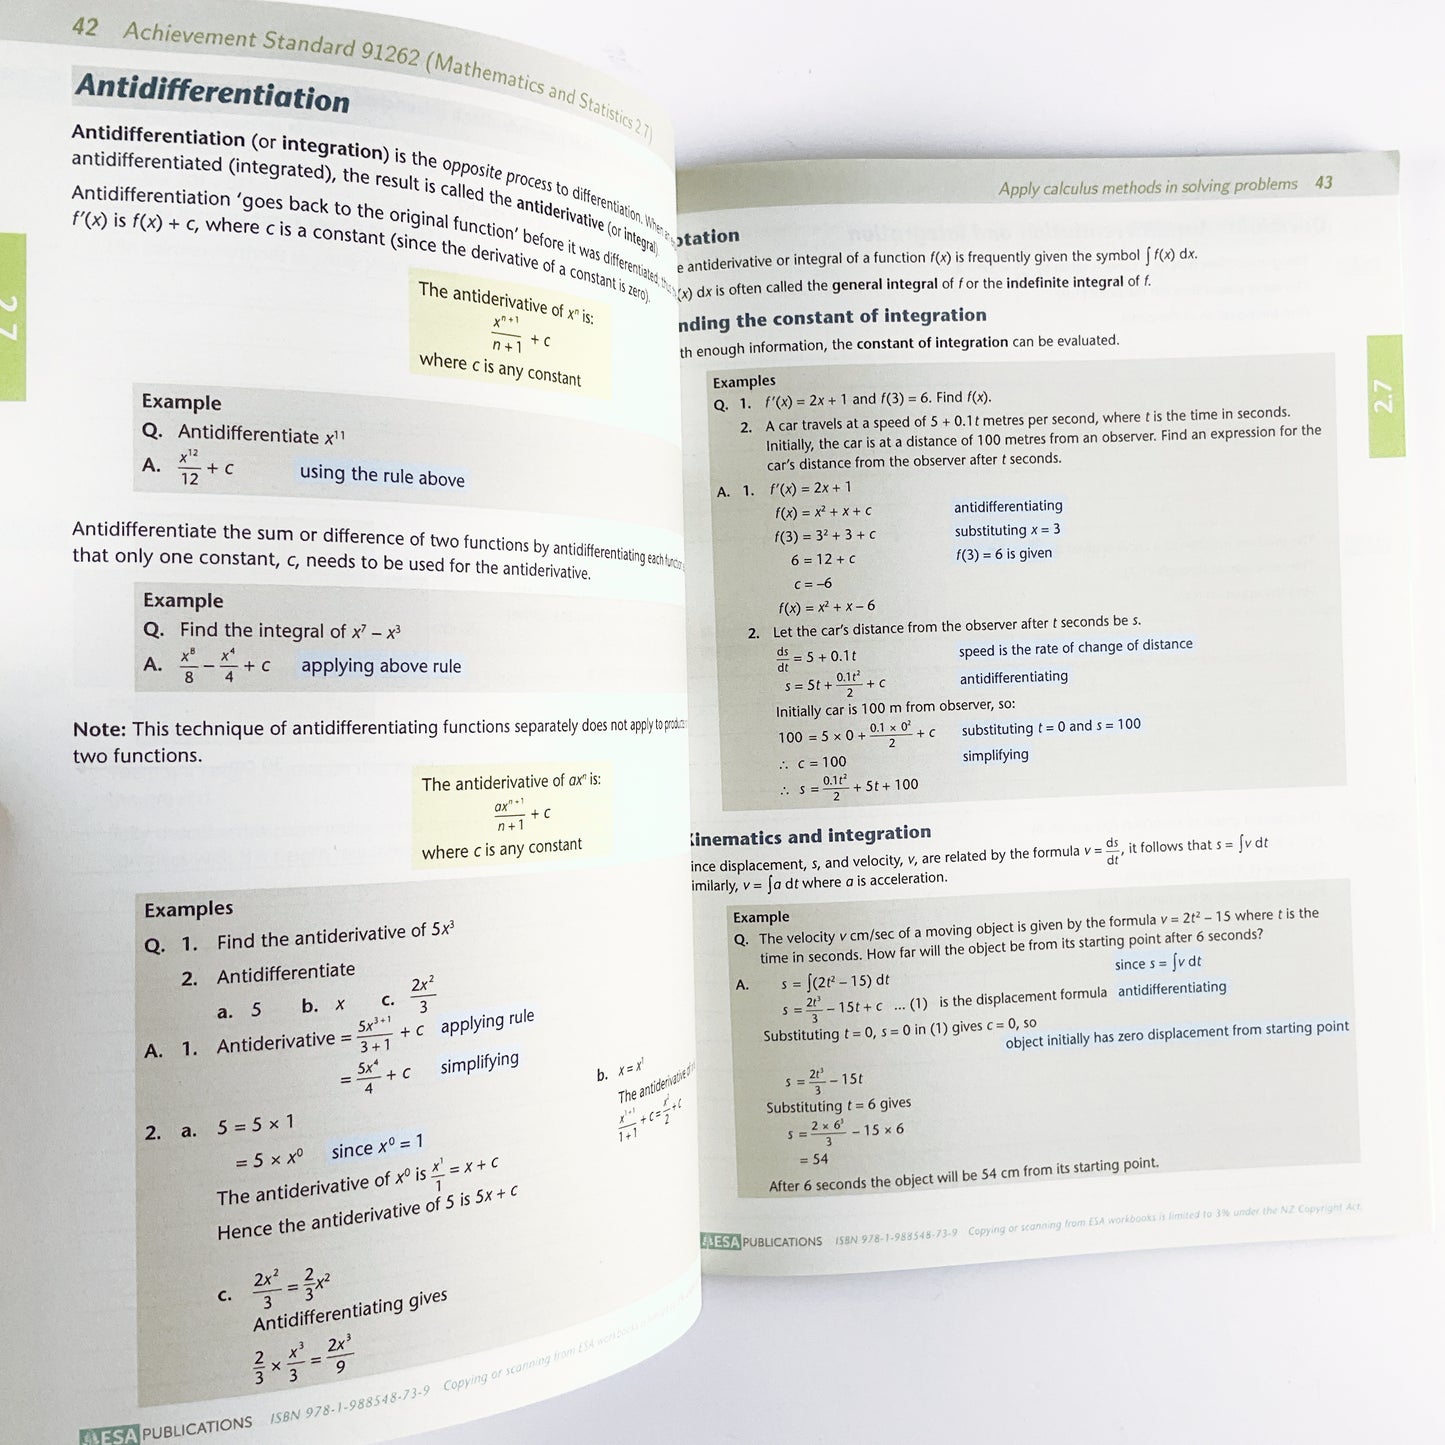 42 Achievement Standard 91262 (Mathematics and Statistics 2.7)
Antidifferentiation
Antidifferentiation (or integration) is the opposite process to differentiation. When
antidifferentiated (integrated), the result is called the antiderivative (or integral).
Antidifferentiation 'goes back to the original function' before it was differentiated,
f'(x) is f(x) + c, where c is a constant (since the derivative of a constant is zero).
The antiderivative of xⁿ is:
xⁿ⁺¹/n + 1 + c
where c is any constant
Example
Q. Antidifferentiate x¹¹
A. x¹²/12 + c using the rule above
Antidifferentiate the sum or difference of two functions by antidifferentiating each
that only one constant, c, needs to be used for the antiderivative.
Example
Q. Find the integral of x⁷ – x³
A. x⁸/8 – x⁴/4 + c applying above rule
Note: This technique of antidifferentiating functions separately does not apply to
two functions.
The antiderivative of axⁿ is:
axⁿ⁺¹/n + 1 + c
where c is any constant
Examples
Q. 1. Find the antiderivative of 5x³
2. Antidifferentiate
a. 5 b. x c. 2x²/3
A. 1. Antiderivative = 5x³⁺¹/3 + 1 + c applying rule
= 5x⁴/4 + c simplifying
2. a. 5 = 5 × 1
= 5 × x⁰ since x⁰ = 1
The antiderivative of x⁰ is x¹/1 = x + c
Hence the antiderivative of 5 is 5x + c
b. x = x¹
The antiderivative of
x¹⁺¹/1+1 + c = x²/2 + c
c. 2x²/3 = 2/3x²
Antidifferentiating gives
2/3 × x³/3 = 2x³/9
ESA PUBLICATIONS ISBN 978-1-988548-73-9 Copying or scanning from ESA workbooks
2.7
Apply calculus methods in solving problems 43
antiderivative or integral of a function f(x) is frequently given the symbol ∫ f(x) dx.
(x) dx is often called the general integral of f or the indefinite integral of f.
nding the constant of integration
th enough information, the constant of integration can be evaluated.
Examples
Q. 1. f'(x) = 2x + 1 and f(3) = 6. Find f(x).
2. A car travels at a speed of 5 + 0.1t metres per second, where t is the time in seconds.
Initially, the car is at a distance of 100 metres from an observer. Find an expression for the
car's distance from the observer after t seconds.
A. 1. f'(x) = 2x + 1
f(x) = x² + x + c antidifferentiating
f(3) = 3² + 3 + c substituting x = 3
6 = 12 + c f(3) = 6 is given
c = –6
f(x) = x² + x – 6
2. Let the car's distance from the observer after t seconds be s.
ds/dt = 5 + 0.1t speed is the rate of change of distance
s = 5t + 0.1t²/2 + c antidifferentiating
Initially car is 100 m from observer, so:
100 = 5 × 0 + 0.1 × 0²/2 + c substituting t = 0 and s = 100
∴ c = 100 simplifying
∴ s = 0.1t²/2 + 5t + 100
Kinematics and integration
ince displacement, s, and velocity, v, are related by the formula v = ds/dt, it follows that s = ∫v dt
imilarly, v = ∫a dt where a is acceleration.
Example
Q. The velocity v cm/sec of a moving object is given by the formula v = 2t² – 15 where t is the
time in seconds. How far will the object be from its starting point after 6 seconds?
A. s = ∫(2t² – 15) dt since s = ∫v dt
s = 2t³/3 – 15t + c ... (1) is the displacement formula antidifferentiating
Substituting t = 0, s = 0 in (1) gives c = 0, so
object initially has zero displacement from starting point
s = 2t³/3 – 15t
Substituting t = 6 gives
s = 2 × 6³/3 – 15 × 6
= 54
After 6 seconds the object will be 54 cm from its starting point.
ESA PUBLICATIONS ISBN 978-1-988548-73-9 Copying or scanning from ESA workbooks is limited to 3% under the NZ Copyright Act.
2.7